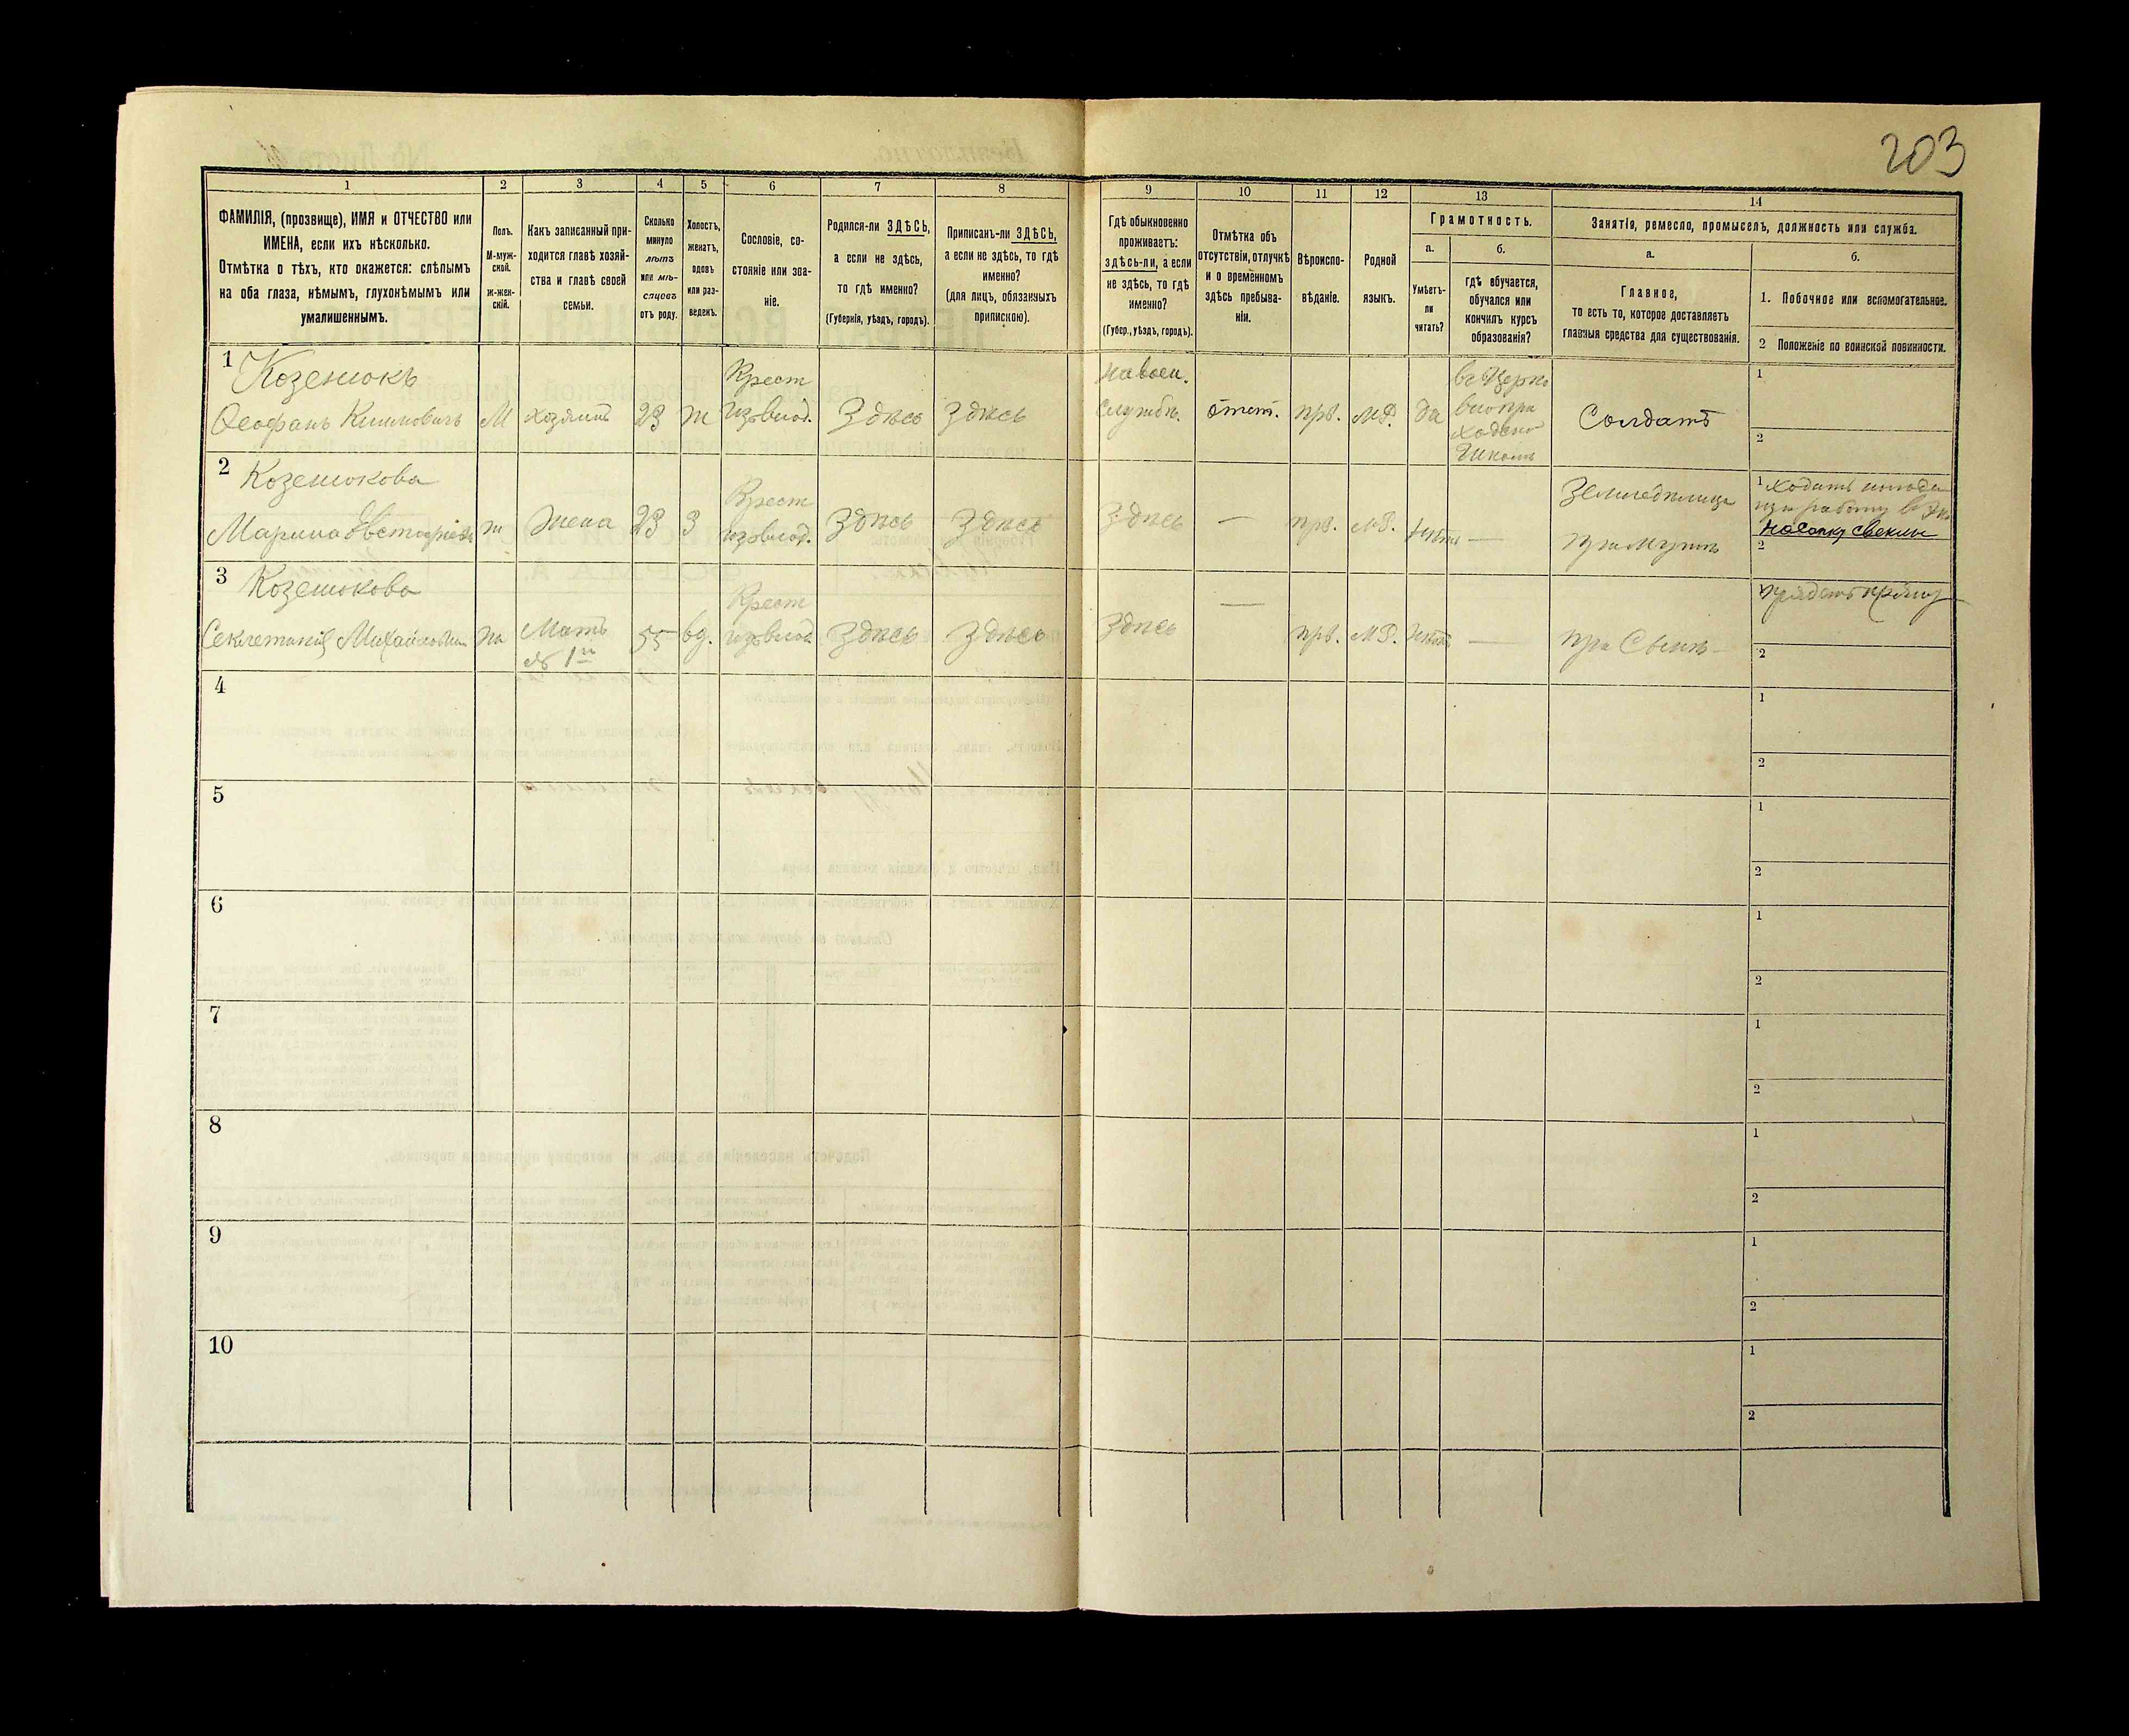 203
1
2
3
4
5
6
7
8
9
10
11
12
13
14
ФАМИЛІЯ, (прозвище), ИМЯ и ОТЧЕСТВО или
ИМЕНА, если ихъ нѣсколько.
Отмѣтка о тѣхъ, кто окажется: слѣпымъ
на оба глаза, нѣмымъ, глухонѣмымъ или
умалишеннымъ.
Полъ.
М-муж-
ской.
ж-жен-
скій.
Какъ записанный при-
ходится главѣ хозяй-
ства и главѣ своей
семьи.
Сколько
минуло
лѣтъ
или мѣ-
сяцевъ
отъ роду.
Холостъ,
женатъ,
вдовъ
или раз-
веденъ.
Сословіе, со-
стояніе или зва-
ніе.
Родился-ли ЗДѢСЬ,
а если не здѣсь,
то гдѣ именно?
(Губернія, уѣздъ, городъ).
Приписанъ-ли ЗДѢСЬ,
а если не здѣсь, то гдѣ
именно?
(для лицъ, обязанныхъ
припискою).
Гдѣ обыкновенно
проживаетъ:
здѣсь-ли, а если
не здѣсь, то гдѣ
именно?
(Губер., уѣздъ, городъ).
Отмѣтка объ
отсутствіи, отлучкѣ
и о временномъ
здѣсь пребыва-
ніи.
Вѣроиспо-
вѣданіе.
Родной
языкъ.
Грамотность.
а.
Умѣетъ-
ли
читать?
б.
гдѣ обучается,
обучался или
кончилъ курсъ
образованія?
Занятія, ремесло, промыселъ, должность или служба.
а.
Главное,
то есть то, которое доставляетъ
главныя средства для существованія.
б.
1. Побочное или вспомогательное.
2 Положеніе по воинской повинности.
1
Козенюкъ
Ѳеофанъ
М
хозяинъ
23
ж
Крест
изъ влад.
Здѣсь
Здѣсь
На воен.
службѣ.
отст.
прв.
М.Р.
да
въ Церко
вно при
ходской
школѣ
Солдатъ
1
2
2
Козенюкова
Марина
ж
жена
23
З
Крест
изъ влад.
Здѣсь
Здѣсь
Здѣсь
—
прв.
М.Р.
нѣтъ
—
Земледѣлица
при мужѣ
1
ходитъ
на работу въ
2
3
Козенюкова
Михайловна
ж
Мать
№ 1го
55
вд.
Крест
изъ влад.
Здѣсь
Здѣсь
Здѣсь
—
прв.
М.Р.
нѣтъ
—
при Сынѣ
прядетъ пряжу
2
4
1
2
5
1
2
6
1
2
7
1
2
8
1
2
9
1
2
10
1
2